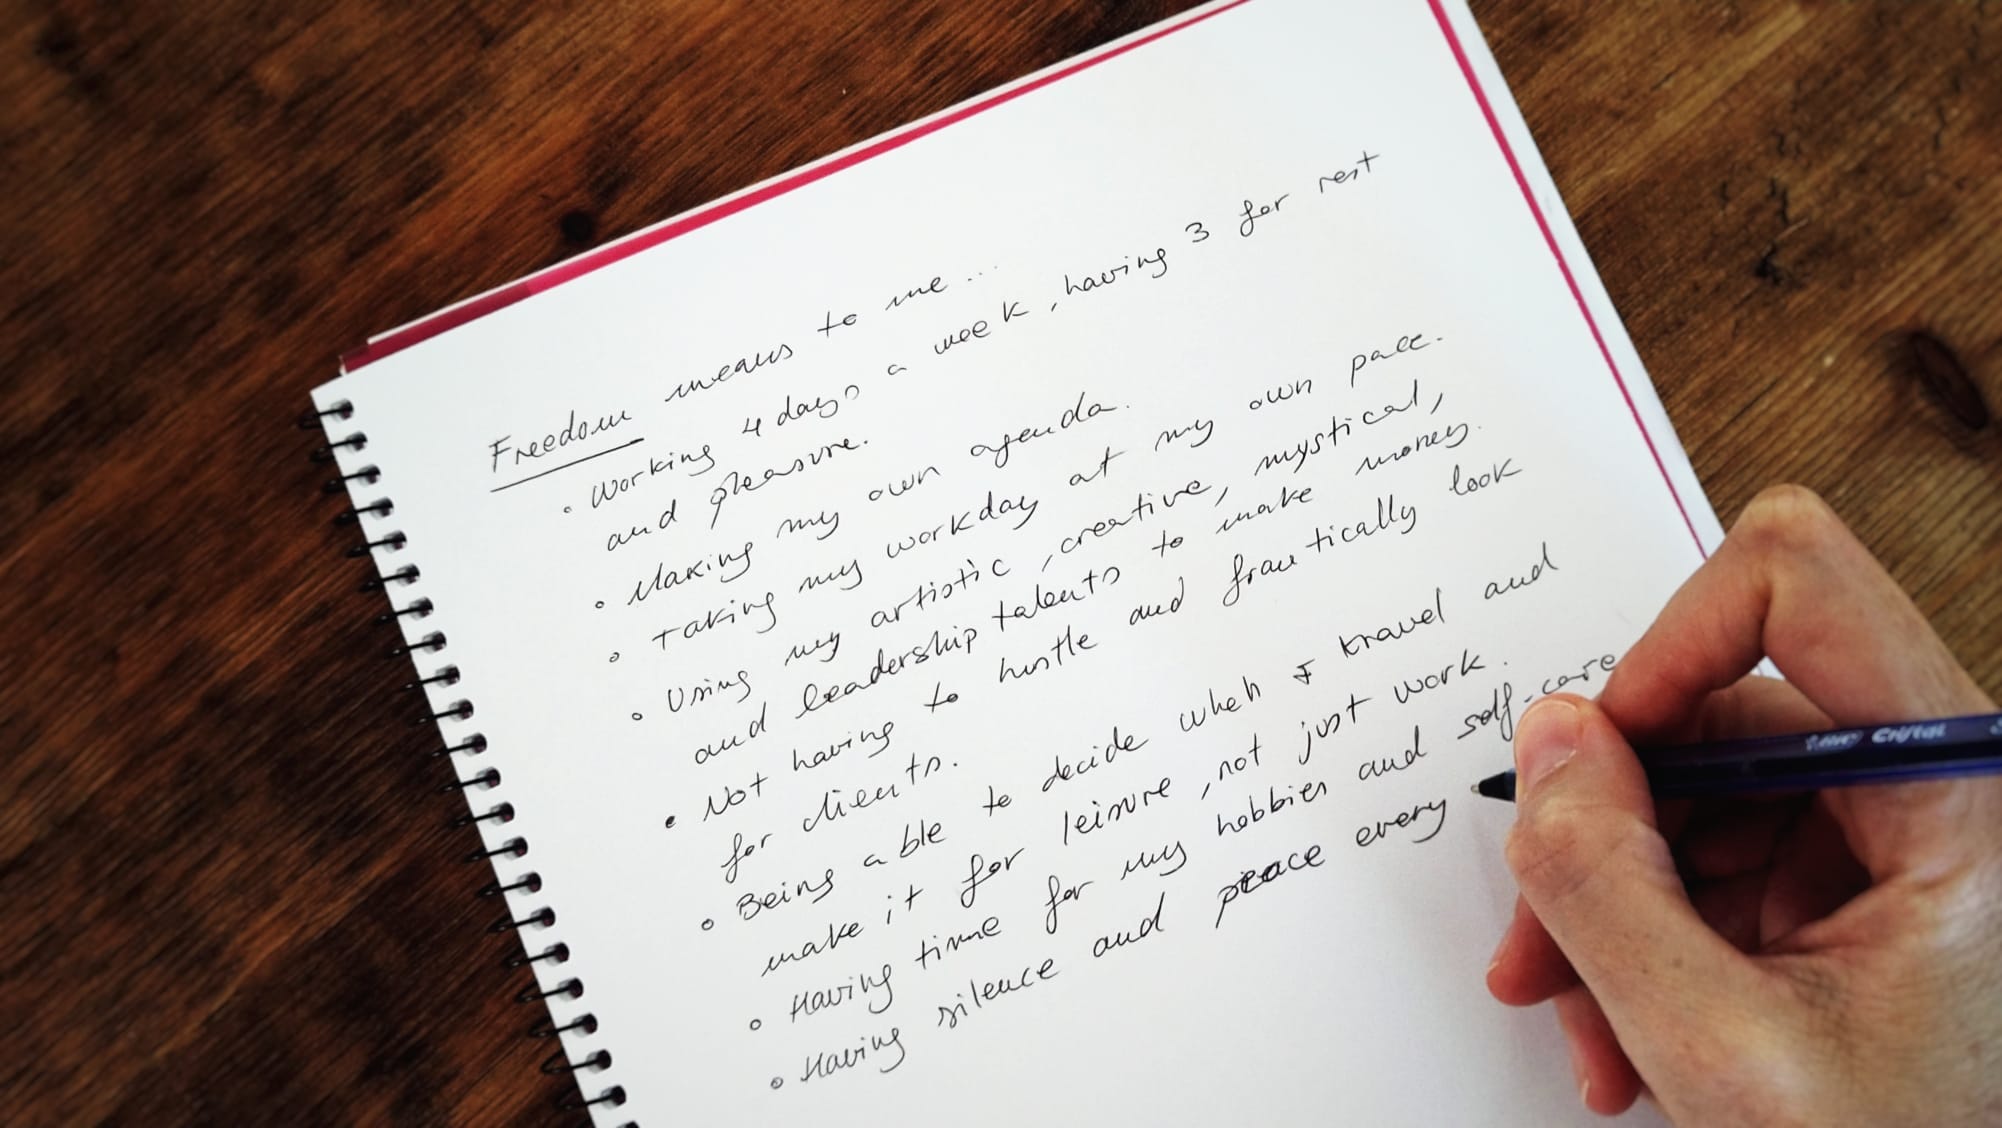 Freedom means to me...
• Working 4 days a week, having 3 for rest
and pleasure.
• Making my own agenda.
• Taking my workday at my own pace.
• Using my artistic, creative, mystical,
and leadership talents to make money.
• Not having to hustle and frantically look
for clients.
• Being able to decide when I travel and
make it for leisure, not just work.
• Having time for my hobbies and self-care
• Having silence and peace every
BIC Cristal